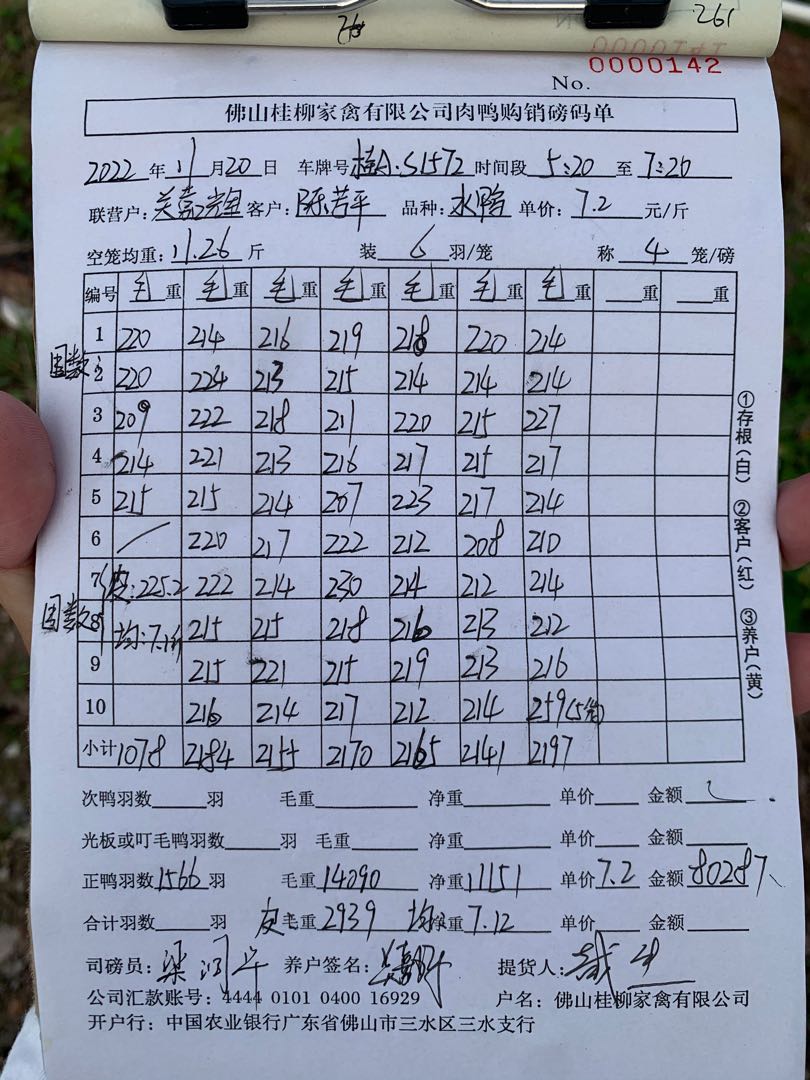 261
0000142
No.
佛山桂柳家禽有限公司肉鸭购销磅码单
2022 年 11 月 20 日 车牌号 桂A·S1572 时间段 5:20 至 7:20
联营户: 客户: 陈若平 品种: 水鸭 单价: 7.2 元/斤
空笼均重: 11.26 斤 装 6 羽/笼 称 4 笼/磅
编号 毛重 毛重 毛重 毛重 毛重 毛重 毛重 重 重
1 220 214 216 219 218 220 214
2 220 224 213 215 214 214 214
3 209 222 218 211 220 215 227
4 214 221 213 216 217 215 217
5 215 215 214 207 223 217 214
6 / 220 217 222 212 208 210
7 皮:225.2 222 214 230 214 212 214
8 均:7.1斤 215 215 218 216 213 212
9 215 221 215 219 213 216
10 216 214 217 212 214 259(5笼)
小计 1078 2184 2155 2170 2165 2141 2197
①存根(白) ②客户(红) ③养户(黄)
次鸭羽数 羽 毛重 净重 单价 金额
光板或叮毛鸭羽数 羽 毛重 净重 单价 金额
正鸭羽数 1566 羽 毛重 14090 净重 11151 单价 7.2 金额 80287
合计羽数 羽 皮毛重 2939 均净重 7.12 单价 金额
司磅员: 养户签名: 提货人:
公司汇款账号: 4444 0101 0400 16929 户名: 佛山桂柳家禽有限公司
开户行: 中国农业银行广东省佛山市三水区三水支行